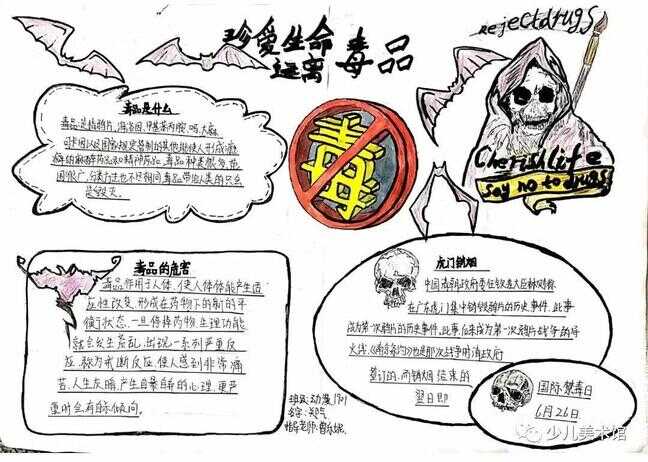 珍爱生命
远离毒品
Rejectdrugs
毒品是什么
毒品是指鸦片,海洛因,甲基苯丙胺,吗,大麻,
可卡因以及国家规定管制的其他能使人形成瘾
癖的麻醉药品和精神药品,毒品种类很多,范
围很广,分类方法也不尽相同毒品带给人类的只会
是毁灭。
毒
Cherishlife
say no to drugs
毒品的危害
毒品作用于人体,使人体体能产生适
应性改变,形成在药物下的新的平
衡状态,一旦停掉药物,生理功能
就会发生紊乱,出现一系列严重反
应,称为戒断反应,使人感到非常痛
苦,人生灰暗,产生自暴自弃的心理,更严
重时会有自杀倾向。
虎门销烟
中国清朝政府委任钦差大臣林则徐
在广东虎门集中销毁鸦片的历史事件,此事
成为第一次鸦片的历史事件,此事后来成为第一次鸦片战争的导
火线,《南京条约》也是那次战争时清政府
签订的,虎门销烟结束的
翌日即
国际禁毒日
6月26日
班级:动漫1701
名字:
指导老师:
少儿美术馆